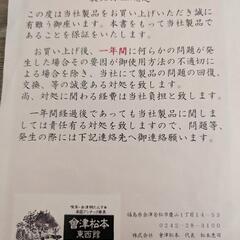 この度は当社製品をお買い上げいただき誠に
有難う御座います。本書をもって当社製品で
あることを証明いたします。
お買い上げ後、一年間に何らかの問題が発
生した場合その要因が御使用方法の不適切に
よる場合を除き、当社にて製品の回復、
交換、等の誠意ある対処を致します。
尚、対処に関わる経費は当社負担と致します。
一年間経過後であっても当社製品に関しま
しては責任有る対処を致しますので、問題等、
発生の際には下記連絡先へ御連絡下さい。
会津松本
東西館
福島県会津若松市
0242-28-3100
株式会社 会津松本 代表 松本恵司